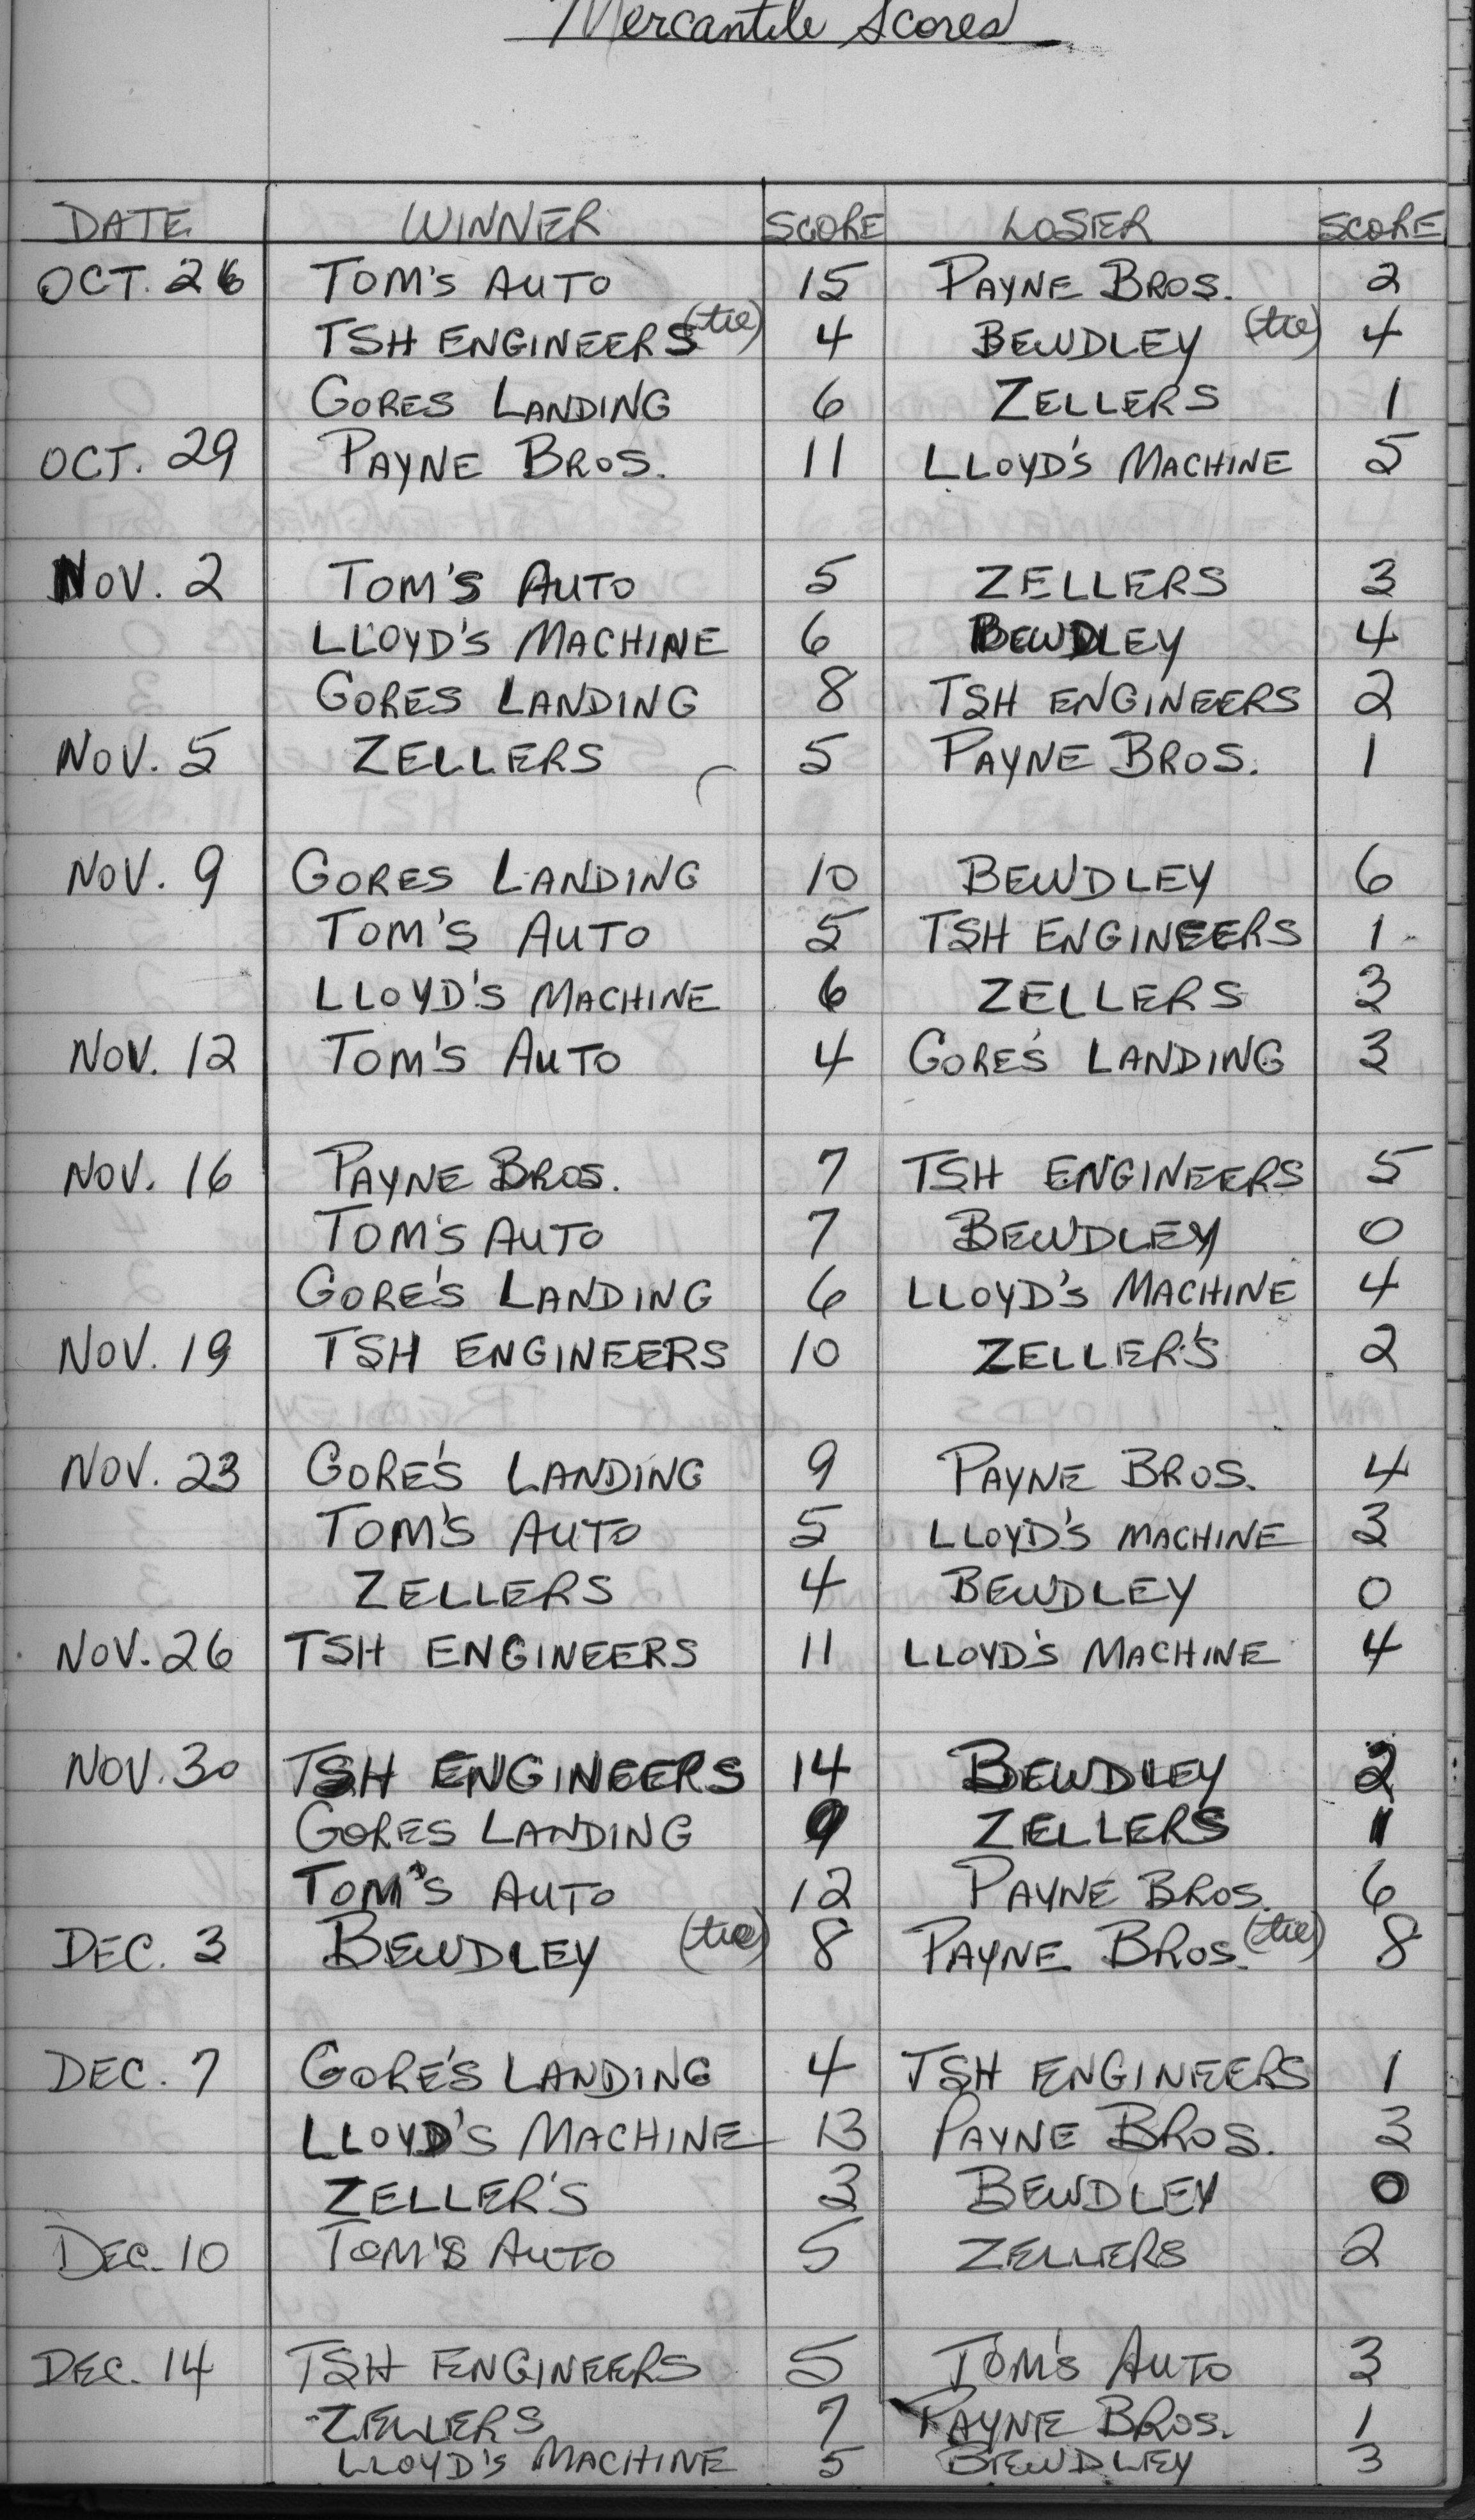 Mercantile Scores
DATE WINNER SCORE LOSER SCORE
OCT. 26 TOM'S AUTO 15 PAYNE BROS. 2
TSH ENGINEERS (tie) 4 BEWDLEY (tie) 4
GORES LANDING 6 ZELLERS 1
OCT. 29 PAYNE BROS. 11 LLOYD'S MACHINE 5
NOV. 2 TOM'S AUTO 5 ZELLERS 3
LLOYD'S MACHINE 6 BEWDLEY 4
GORES LANDING 8 TSH ENGINEERS 2
NOV. 5 ZELLERS 5 PAYNE BROS. 1
NOV. 9 GORES LANDING 10 BEWDLEY 6
TOM'S AUTO 5 TSH ENGINEERS 1
LLOYD'S MACHINE 6 ZELLERS 3
NOV. 12 TOM'S AUTO 4 GORE'S LANDING 3
NOV. 16 PAYNE BROS. 7 TSH ENGINEERS 5
TOM'S AUTO 7 BEWDLEY 0
GORE'S LANDING 6 LLOYD'S MACHINE 4
NOV. 19 TSH ENGINEERS 10 ZELLER'S 2
NOV. 23 GORE'S LANDING 9 PAYNE BROS. 4
TOM'S AUTO 5 LLOYD'S MACHINE 3
ZELLERS 4 BEWDLEY 0
NOV. 26 TSH ENGINEERS 11 LLOYD'S MACHINE 4
NOV. 30 TSH ENGINEERS 14 BEWDLEY 2
GORES LANDING 9 ZELLERS 1
TOM'S AUTO 12 PAYNE BROS. 6
DEC. 3 BEWDLEY (tie) 8 PAYNE BROS. (tie) 8
DEC. 7 GORE'S LANDING 4 TSH ENGINEERS 1
LLOYD'S MACHINE 13 PAYNE BROS. 3
ZELLER'S 3 BEWDLEY 0
DEC. 10 TOM'S AUTO 5 ZELLERS 2
DEC. 14 TSH ENGINEERS 5 TOM'S AUTO 3
ZELLERS 7 PAYNE BROS. 1
LLOYD'S MACHINE 5 BEWDLEY 3